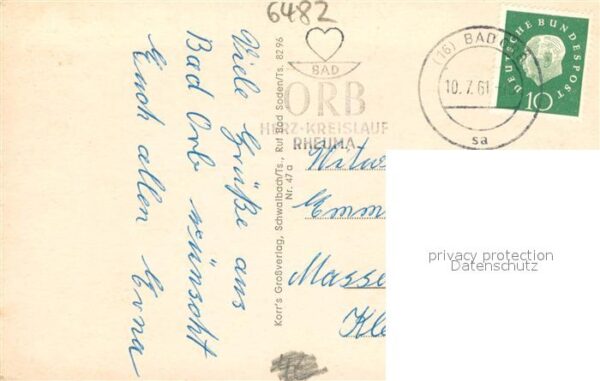 6482
Viele Grüße aus
Bad Orb wünscht
Euch allen Erna
Korr's Großverlag, Schwalbach/Ts., Ruf Bad Soden/Ts. 8296
Nr. 47 a
BAD
ORB
HERZ-KREISLAUF
RHEUMA
(16) BAD
10.7.61
sa
DEUTSCHE BUNDESPOST
10
Emm
Masse
Kle
privacy protection
Datenschutz